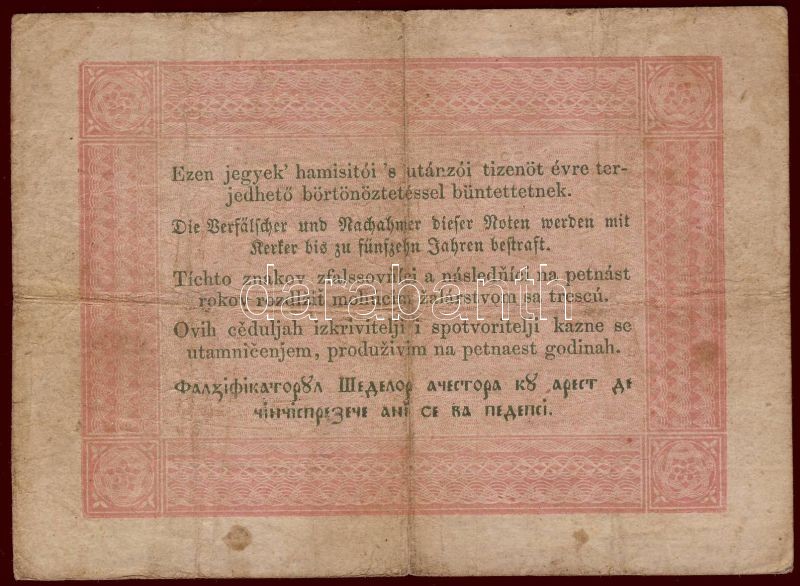 Ezen jegyek' hamisitói 's utánzói tizenöt évre ter-
jedhető börtönöztetéssel büntettetnek.
Die Verfälscher und Nachahmer dieser Noten werden mit
Kerker bis zu fünfzehn Jahren bestraft.
Tíchto znakov zfalssovníci a následňíci na petnást
rokov rozdlžit žalárstvom sa trescú.
darabanth
Ovih cěduljah izkrivitelji i spotvoritelji kazne se
utamničenjem, produživim na petnaest godinah.
Фалꙁіфікаторꙋл Шеделор ачестора кꙋ арест де
чінчіспреꙁече ані се ва педепсі.